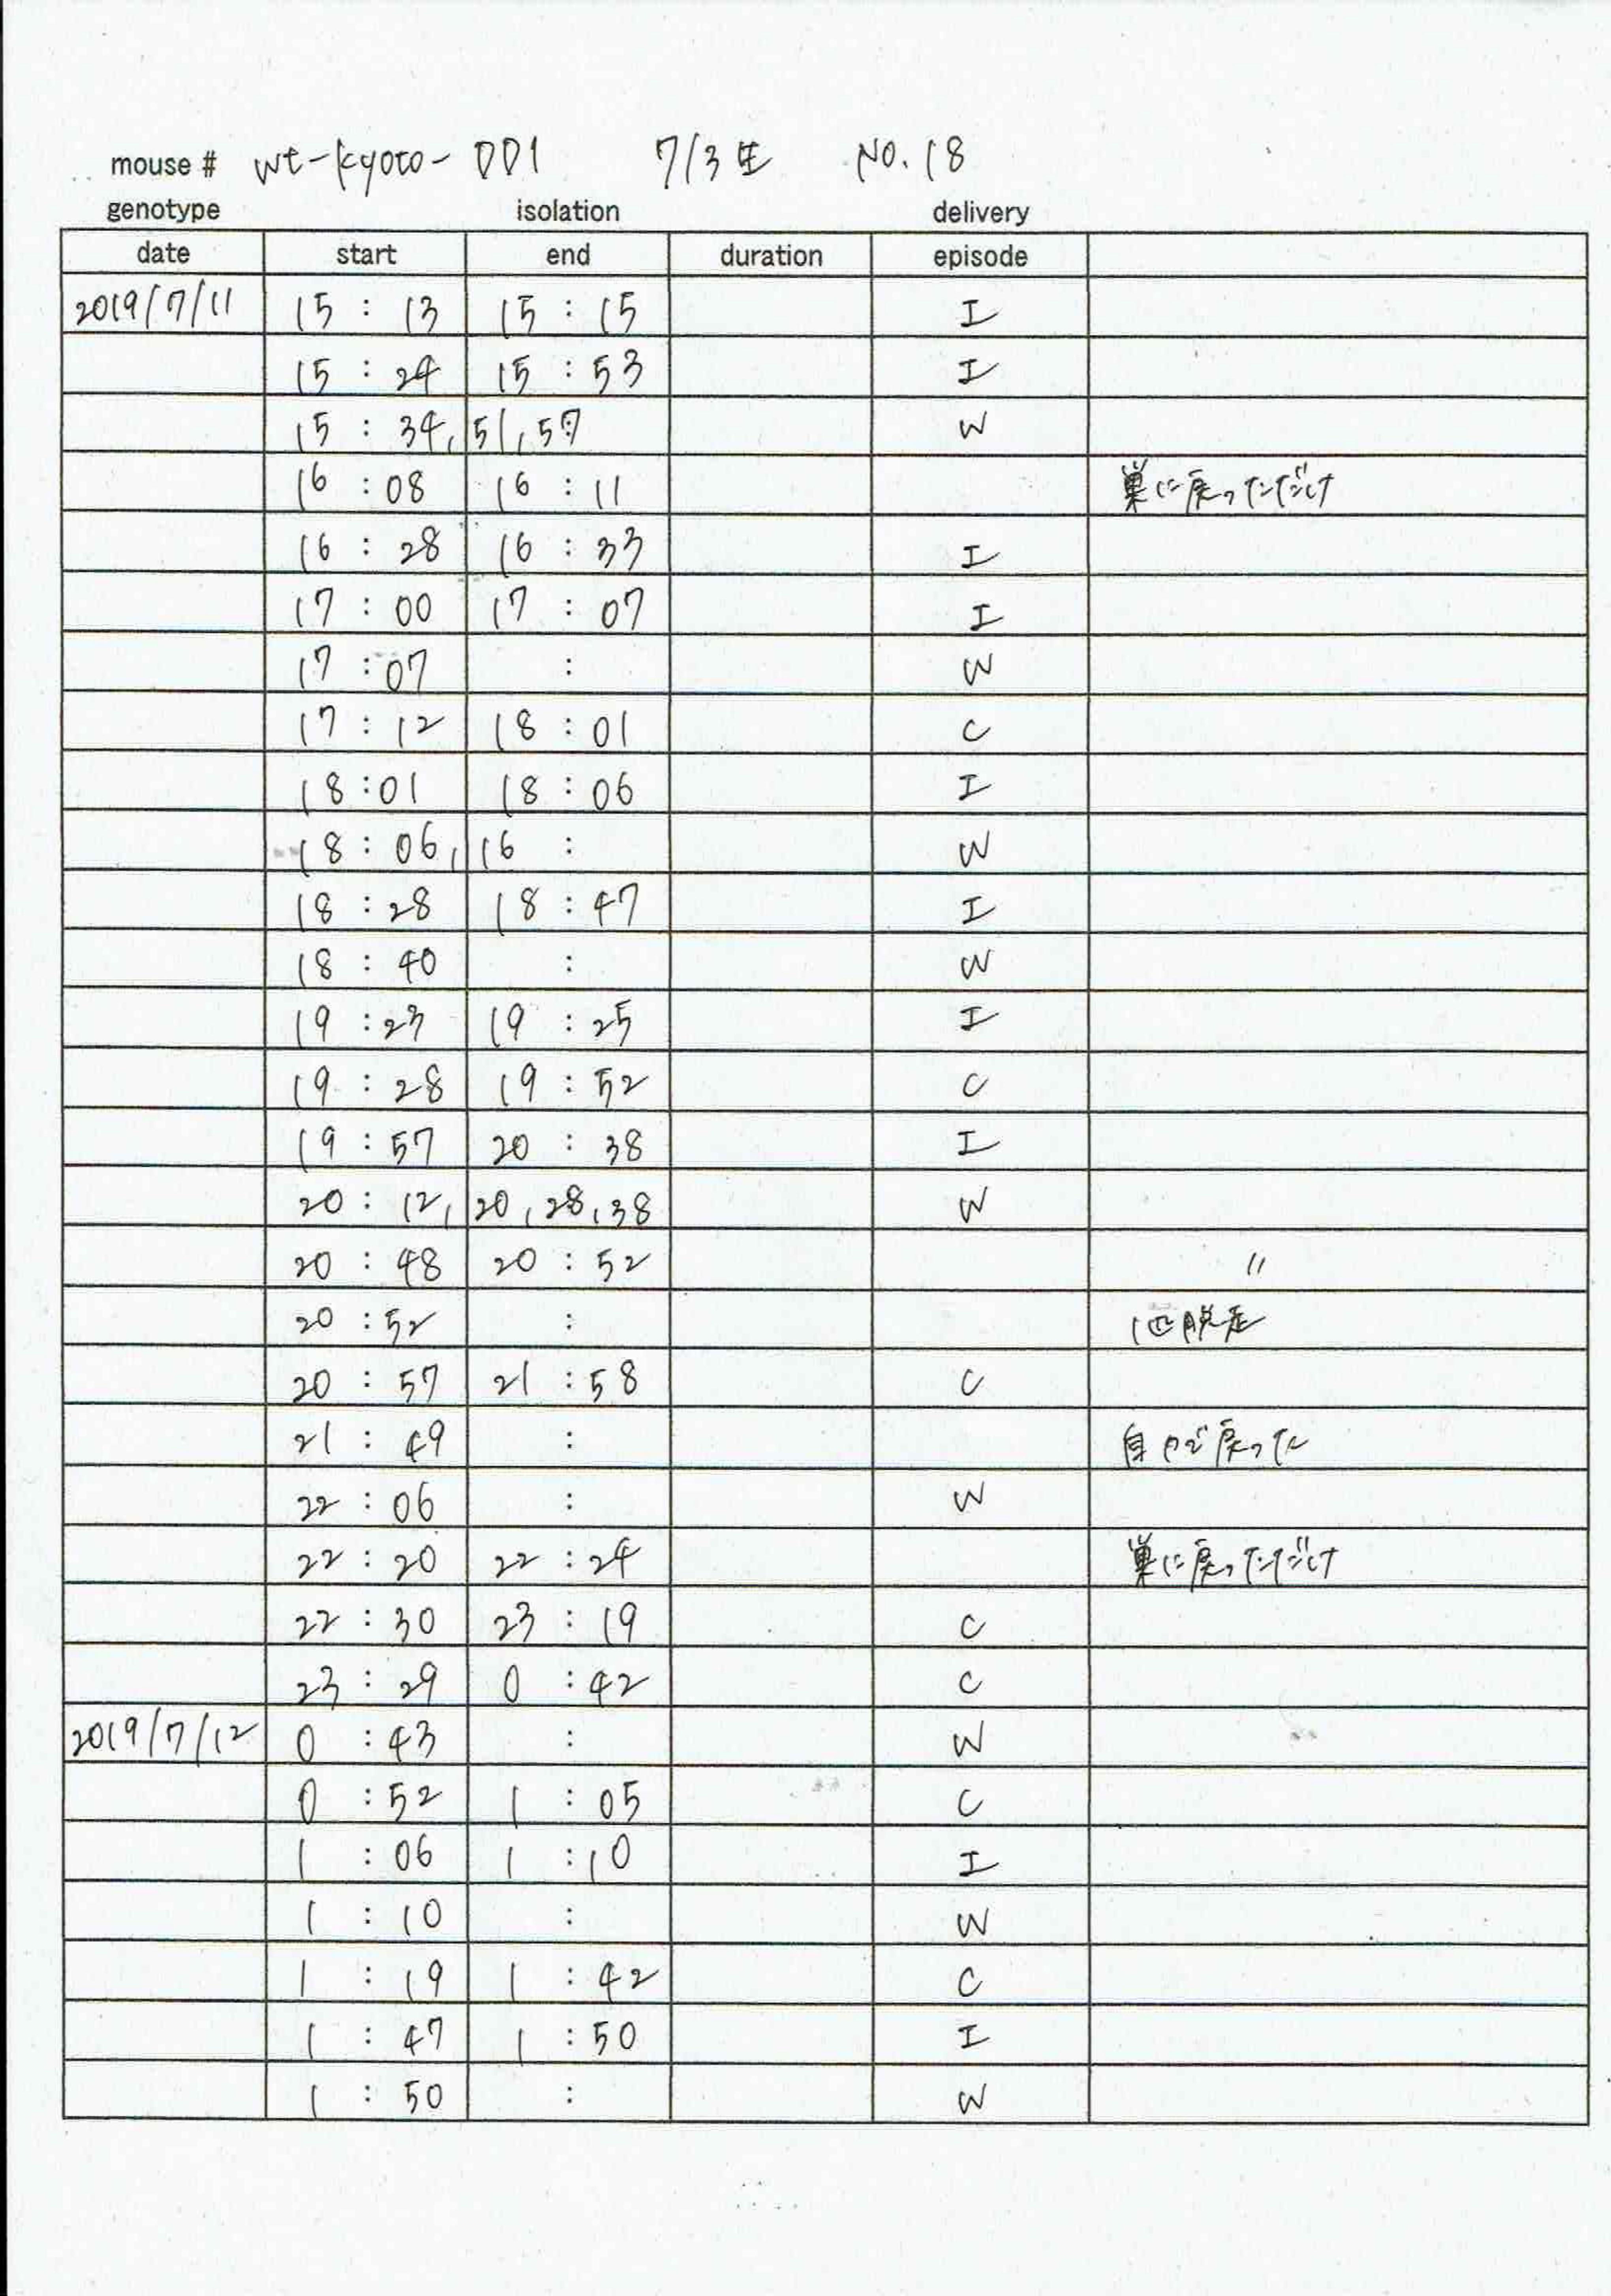 mouse # wt-kyoto-001 7/3生 NO.18
genotype isolation delivery
date start end duration episode
2019/7/11 15:13 15:15 I
15:24 15:53 I
15:34, 51, 57 W
16:08 16:11 巣に戻っただけ
16:28 16:33 I
17:00 17:07 I
17:07 : W
17:12 18:01 C
18:01 18:06 I
18:06, 16 : W
18:28 18:47 I
18:40 : W
19:23 19:25 I
19:28 19:52 C
19:57 20:38 I
20:12, 20, 28, 38 W
20:48 20:52 〃
20:52 : 1匹脱走
20:57 21:58 C
21:49 : 自力で戻った
22:06 : W
22:20 22:24 巣に戻っただけ
22:30 23:19 C
23:29 0:42 C
2019/7/12 0:43 : W
0:52 1:05 C
1:06 1:10 I
1:10 : W
1:19 1:42 C
1:47 1:50 I
1:50 : W